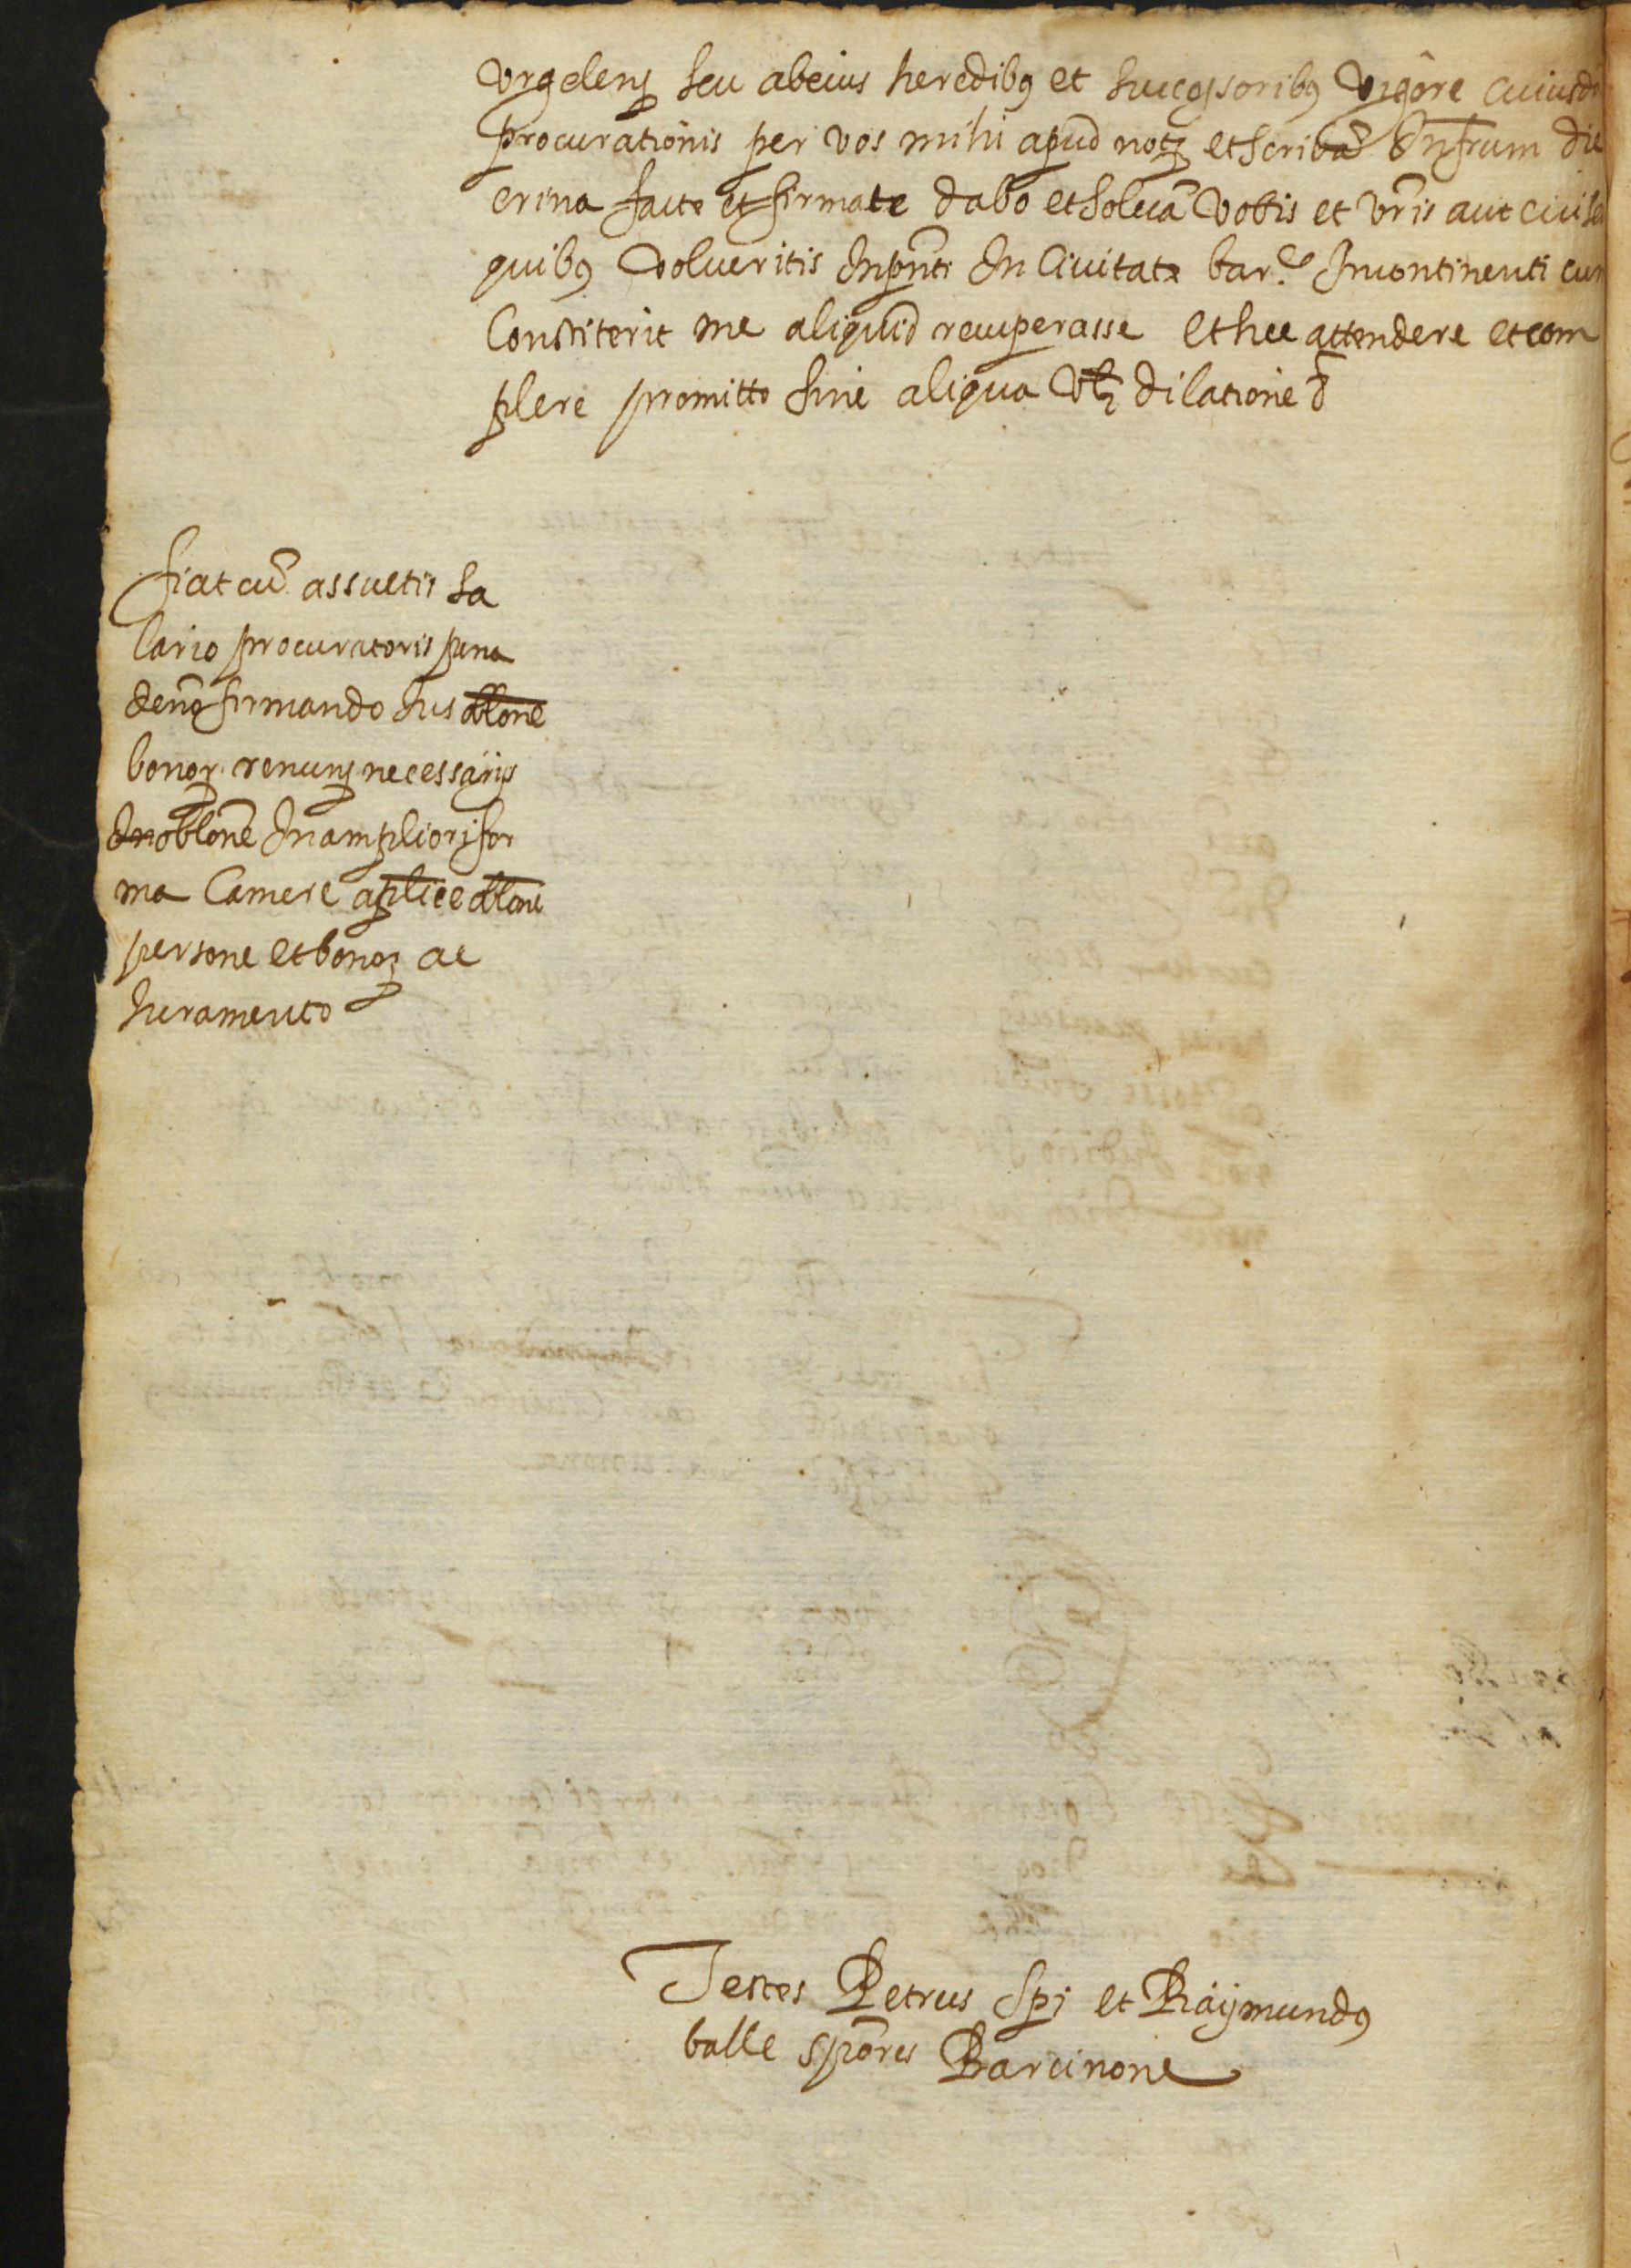 Urgelen̄ seu ab eius heredibꝰ et successoribꝰ vigore cuiusd
procurationis per vos mihi apud notm et scribā Infrum die
erina facte et firmate dabo et soluā vobis et vr̄is aut cui se
quibꝰ volueritis Inpn̄ti In Ciuitate barᵉ Incontinenti cum
Constiterit me aliquid recuperasse et hec attendere et com
plere promitto sine aliqua vlꝫ dilatione
fiat cū assuetis Sa
lario procuratoris pena
de nō firmando Ius oblone
bonoꝝ renunꝭ necessarijs
In oblone In ampliori for
ma Camere aplice oblone
persone et bonoꝝ ac
Iuramento
Testes Petrus Spi et Raÿmundꝰ
balle sp̄ores Barcinone